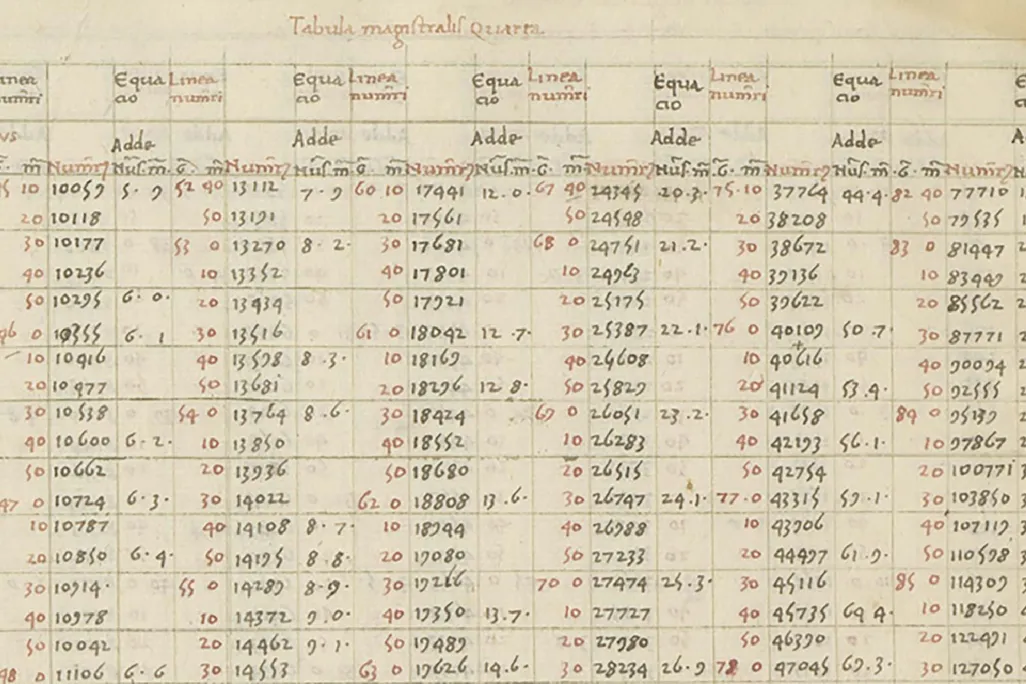 Tabula magistralis Quarta
Equa Linea Equa Linea Equa Linea Equa Linea Equa Linea
cio num̄ri cio num̄ri cio num̄ri cio num̄ri cio num̄ri
Adde Adde Adde Adde Adde
10 10059 5. 9 52 40 13112 7. 9 60 10 17441 12. 0. 67 40 24345 20.3. 75.10 37764 44.4. 82 40 77710
20 10118 50 13191 20 17561 50 24548 20 38208 50 79535
30 10177 53 0 13270 8. 2. 30 17681 68 0 24751 21.2. 30 38672 83 0 81447
40 10236 10 13352 40 17801 10 24963 40 39136 10 83449
50 10295 6. 0. 20 13434 50 17921 20 25175 50 39622 20 85562
46 0 10355 6. 1 30 13516 61 0 18042 12.7. 30 25387 22.1. 76 0 40109 50 7. 30 87771
10 10416 40 13598 8.3. 10 18169 40 25608 10 40616 40 90094
20 10477 50 13681 20 18296 12 8. 50 25829 20 41124 53.4. 50 92555
30 10538 54 0 13764 8.6. 30 18424 69 0 26051 23.2. 30 41658 84 0 95139
40 10600 6.2. 10 13850 40 18552 10 26283 40 42193 56.1. 10 97867
50 10662 20 13936 50 18680 20 26515 50 42754 20 100771
47 0 10724 6.3. 30 14022 62 0 18808 13.6. 30 26747 24.1. 77.0 43315 59.1. 30 103850
10 10787 40 14108 8.7. 10 18944 40 26988 10 43906 40 107119
20 10850 6.4. 50 14195 8.8. 20 19080 50 27233 20 44497 61.9. 50 110598
30 10914. 55 0 14289 8.9. 30 19216 70 0 27474 25.3. 30 45116 85 0 114309
40 10978 10 14372 9.0. 40 19350 13.7. 10 27727 40 45735 64 4. 10 118250
50 10042 20 14462 9.1. 50 19489 20 27980 50 46390 20 122491
48 0 11106 6.6 30 14553 63 0 19626 14.6. 30 28234 26.9 78 0 47045 69.3. 30 127050